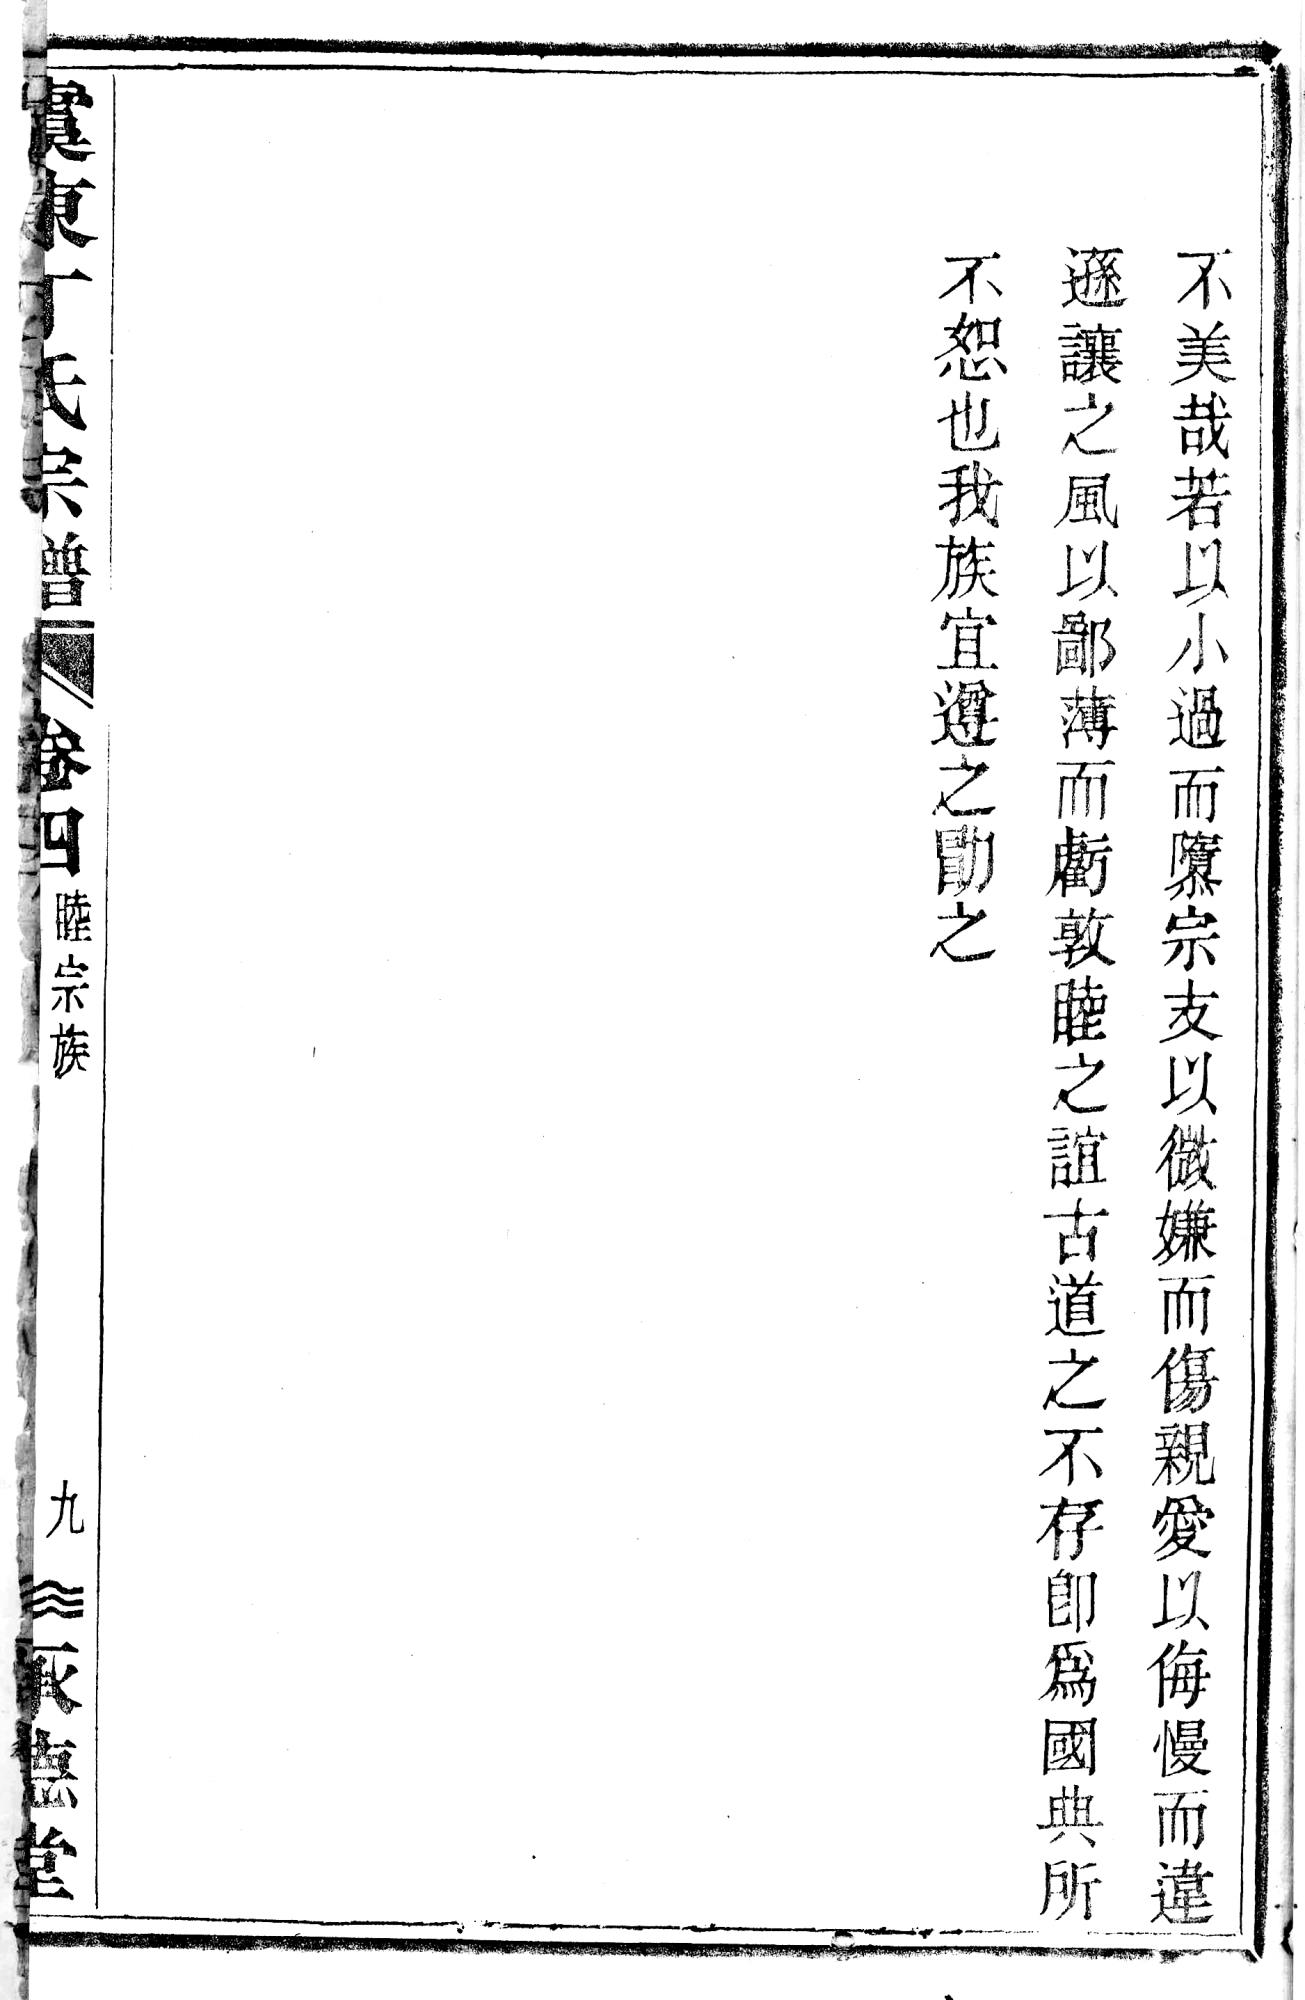 不美哉若以小過而隳宗支以微嫌而傷親愛以侮慢而違
遜讓之風以鄙薄而虧敦睦之誼古道之不存卽爲國典所
不恕也我族宜遵之勖之
虞東丁氏宗譜
卷四
睦宗族
九
承德堂